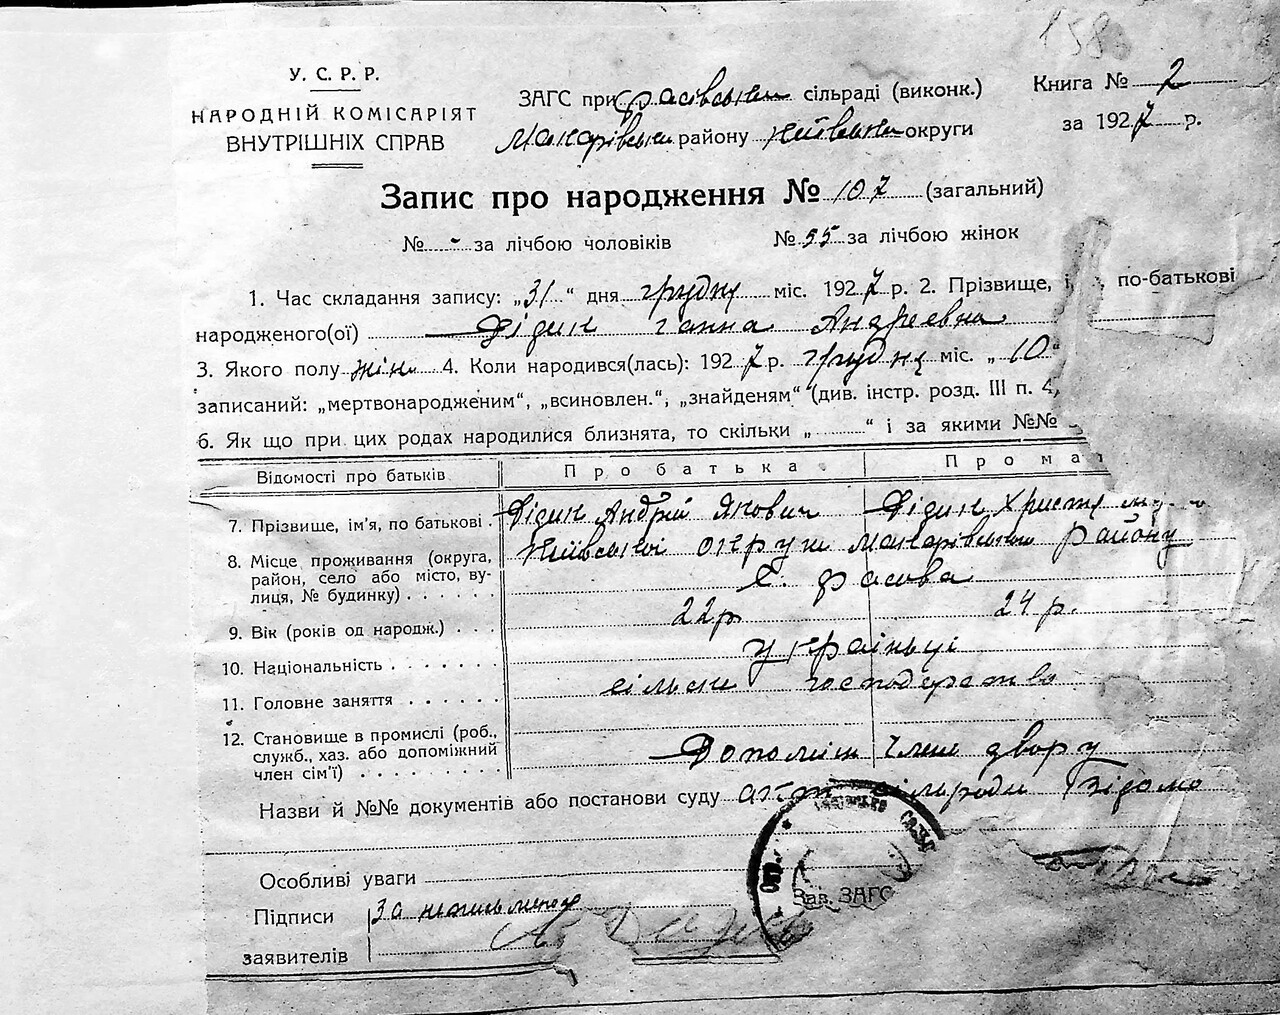 158
У. С. Р. Р.
НАРОДНІЙ КОМІСАРІЯТ
ВНУТРІШНІХ СПРАВ
ЗАГС при Фасівськім сільраді (виконк.)
Макарівськ району Київськ округи
Книга № 2
за 1927 р.
Запис про народження № 107 (загальний)
№ - за лічбою чоловіків № 55 за лічбою жінок
1. Час складання запису: „31“ дня грудн міс. 1927 р. 2. Прізвище, і по-батькові
народженого(ої) Дідик Ганна Андреевна
3. Якого полу жін. 4. Коли народився(лась): 1927 р. грудня міс. „10“
записаний: „мертвонародженим“, „всиновлен.“, „знайденям“ (див. інстр. розд. III п. 4,
6. Як що при цих родах народилися близнята, то скільки „ “ і за якими №№
Відомості про батьків Про батька Про ма
7. Прізвище, ім'я, по батькові Дідик Андрій Якович Дідик Христ
8. Місце проживання (округа, район, село або місто, вулиця, № будинку) Київської округи Макарівського району
с. Фасова
9. Вік (років од народж.) 22 р. 24 р.
10. Національність українці
11. Головне заняття сільськ господарство
12. Становище в промислі (роб., служб., хаз. або допоміжний член сім'ї) Допоміж член двору
Назви й №№ документів або постанови суду акт сільради відомо
Особливі уваги
Зав. ЗАГС
Підписи За неписьменого
заявителів